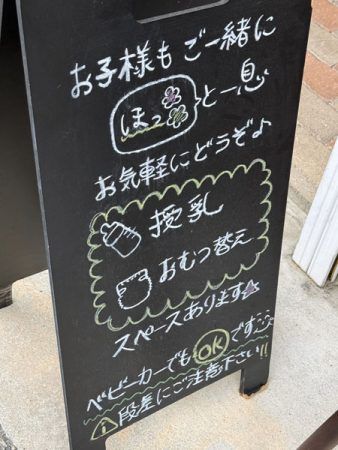 お子様もご一緒に
ほっと一息
お気軽にどうぞよ
授乳
おむつ替え
スペースあります
ベビーカーでもOKです
⚠段差にご注意下さい!!